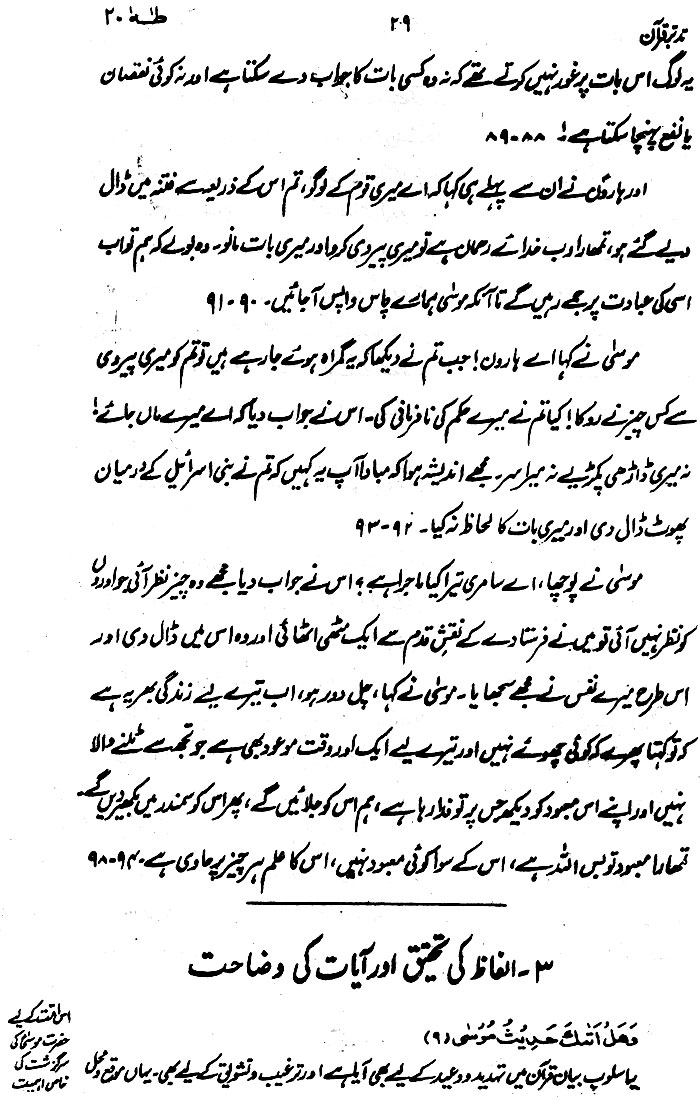 تدبر قرآن ۲۹ طٰہٰ ۲۰
یہ لوگ اس بات پر غور نہیں کرتے تھے کہ نہ وہ کسی بات کا جواب دے سکتا ہے اور نہ کوئی نقصان
یا نفع پہنچا سکتا ہے! ۸۸-۸۹
اور ہارونؑ نے ان سے پہلے ہی کہا کہ اے میری قوم کے لوگو، تم اس کے ذریعہ سے فتنہ میں ڈال
دیے گئے ہو، تمھارا رب خدائے رحمان ہے تو میری پیروی کرو اور میری بات مانو۔ وہ بولے کہ ہم تو اب
اسی کی عبادت پر جمے رہیں گے تا آنکہ موسٰی ہمارے پاس واپس آجائیں۔ ۹۰-۹۱
موسٰی نے کہا اے ہارون! جب تم نے دیکھا کہ یہ گمراہ ہوئے جا رہے ہیں تو تم کو میری پیروی
سے کس چیز نے روکا! کیا تم نے میرے حکم کی نافرمانی کی۔ اس نے جواب دیا کہ اے میرے ماں جائے!
نہ میری ڈاڑھی پکڑیے نہ میرا سر۔ مجھے اندیشہ ہوا کہ مبادا آپ یہ کہیں کہ تم نے بنی اسرائیل کے درمیان
پھوٹ ڈال دی اور میری بات کا لحاظ نہ کیا۔ ۹۲-۹۳
موسٰی نے پوچھا، اے سامری تیرا کیا ماجرا ہے؟ اس نے جواب دیا مجھے وہ چیز نظر آئی جو اوروں
کو نظر نہیں آئی تو میں نے فرستادے کے نقشِ قدم سے ایک مٹھی اٹھائی اور وہ اس میں ڈال دی اور
اس طرح میرے نفس نے مجھے سجھایا۔ موسٰی نے کہا، چل دور ہو، اب تیرے لیے زندگی بھر یہ ہے
کہ تو کہتا پھرے کہ کوئی چھوئے نہیں اور تیرے لیے ایک اور وقت موعود بھی ہے جو تجھ سے ٹلنے والا
نہیں اور اپنے اس معبود کو دیکھ جس پر تو فدا رہا ہے، ہم اس کو جلائیں گے، پھر اس کو سمندر میں بکھیر دیں گے۔
تمھارا معبود تو بس اللہ ہے، اس کے سوا کوئی معبود نہیں، اس کا علم ہر چیز پر حاوی ہے۔ ۹۴-۹۸
۳۔ الفاظ کی تحقیق اور آیات کی وضاحت
وَهَلْ اَتٰىكَ حَدِيْثُ مُوْسٰى (۹)
یہ اسلوب بیان قرآن میں تہدید و وعید کے لیے بھی آیا ہے اور ترغیب و تشویق کے لیے بھی۔ یہاں موقع و محل
اس وقت کے لیے
حضرت موسیٰؑ کی
سرگزشت کی
خاص اہمیت